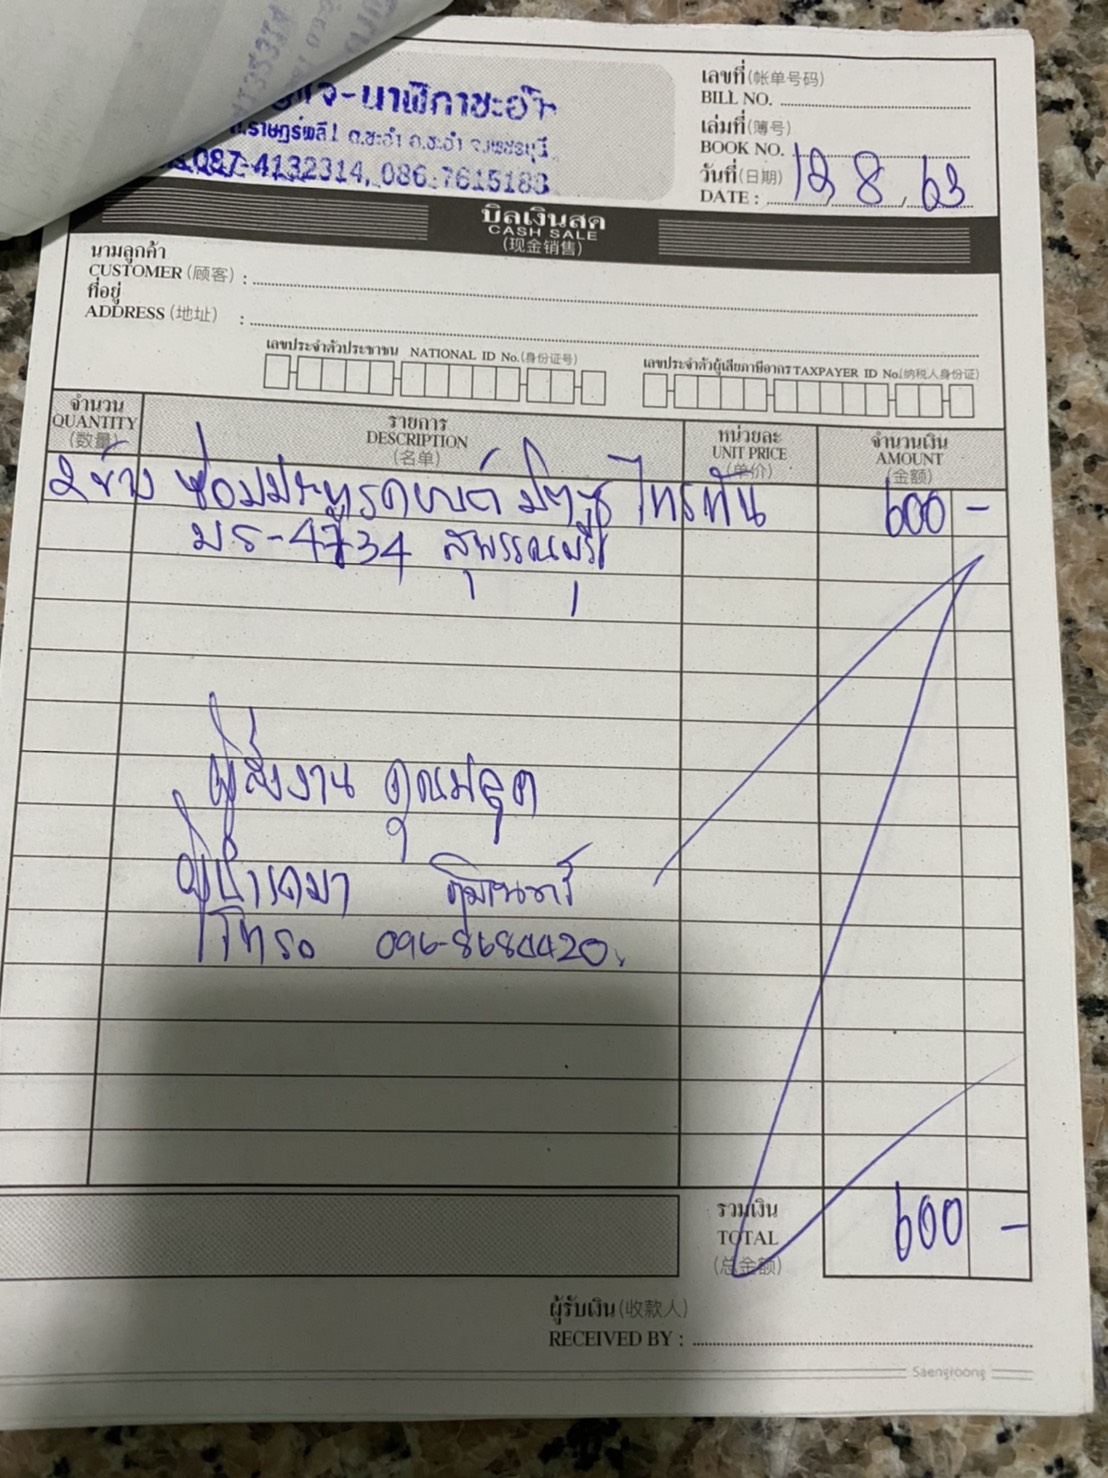 กุญแจ-นาฬิกาชะอำ
ถ.ราษฎร์พลี 1 ต.ชะอำ อ.ชะอำ จ.เพชรบุรี
087-4132314, 086-7615188
เลขที่ (帐单号码)
BILL NO.
เล่มที่ (簿号)
BOOK NO.
วันที่ (日期)
DATE : 12, 8, 63
บิลเงินสด
CASH SALE
(现金销售)
นามลูกค้า
CUSTOMER (顾客) :
ที่อยู่
ADDRESS (地址) :
เลขประจำตัวประชาชน NATIONAL ID No. (身份证号)
เลขประจำตัวผู้เสียภาษีอากร TAXPAYER ID No. (纳税人身份证)
จำนวน รายการ หน่วยละ จำนวนเงิน
QUANTITY DESCRIPTION UNIT PRICE AMOUNT
(数量) (名单) (单价) (金额)
2 ข้าง ซ่อมประตูรถยนต์ มิตซู ไทรทัน 600 -
มร-4734 สุพรรณบุรี
ผู้สั่งงาน คุณ
ผู้นำรถมา
โทร 096-8684420
รวมเงิน
TOTAL 600 -
(总金额)
ผู้รับเงิน (收款人)
RECEIVED BY :
Saengroong